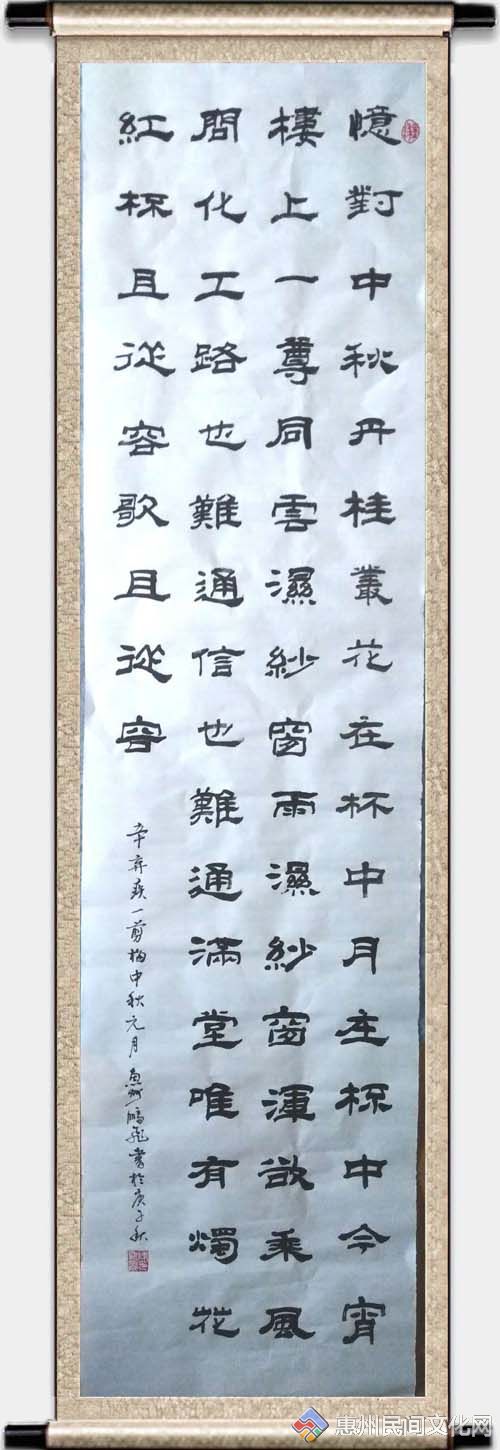 憶對中秋丹桂叢花在杯中月在杯中今宵
樓上一尊同雲濕紗窗雨濕紗窗渾欲乘風
問化工路也難通信也難通滿堂唯有燭花
紅杯且從容歌且從容
辛弃疾一剪梅中秋元月 惠州鵬飛書於庚子秋
惠州民间文化网